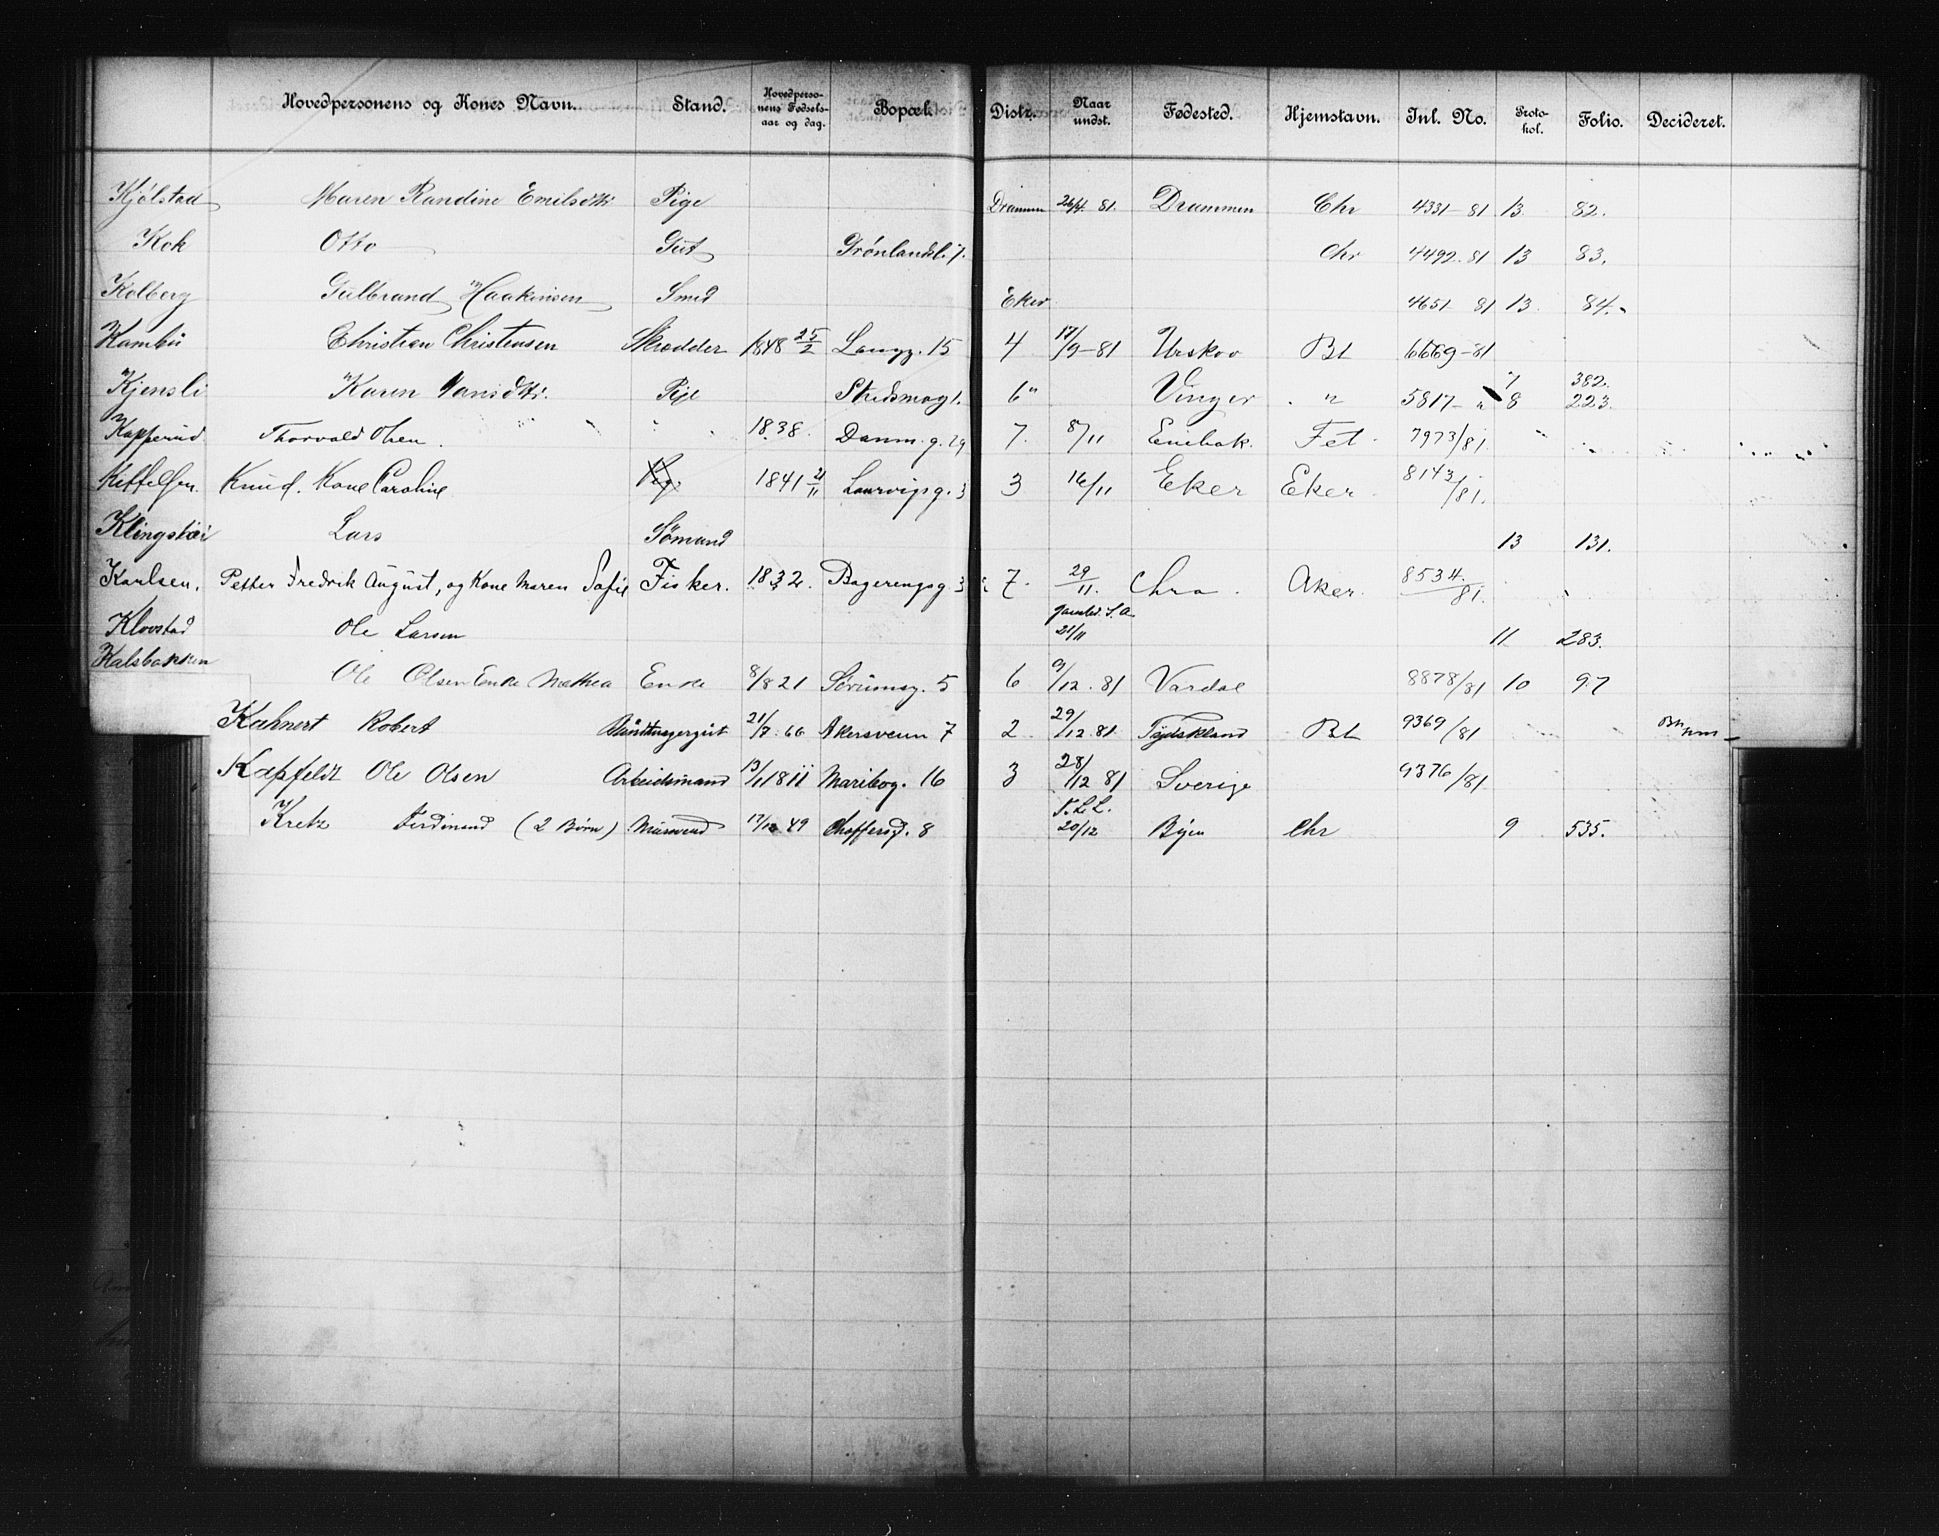 Hovedpersonens og Kones Navn. Stand. Hovedpersonens Fødselsaar og dag. Bopæl. Distr. Naar undst. Fødested. Hjemstavn. Inl. No. Protokol. Folio. Decideret.
Kjølstad Maren Randine Emilsdtr Pige Drammen 26/4 81. Drammen Chr 4331-81 13 82.
Kok Otto Gut Grønlandsl. 7. Chr 4492-81 13 83.
Kolberg Gulbrand Haakensen Smed Eker 4651-81 13 84.
Kambu Christian Christensen Skrædder 1848 25/2 Langg. 15 4 17/9-81 Urskov Bl 6669-81
Kjensli Karen Hansdtr. Pige 6 " Vinger " 5817- " 7 382.
8 223.
Kopperud Thorvald Olsen. 1838. Danm.g. 29 7. 8/11 Enebak. Fet. 7973/81.
Kittelsen. Knud. Kone Caroline 1841 21/11 Laurvigsg. 3 3 16/11 Eker Eker. 8143/81.
Lars Sømand 13 131.
Karlsen. Petter Fredrik August, og Kone Maren Sofie Fisker. 1832. 7. 29/11. Chra. Aker. 8534/81.
Klovstad Ole Larsen 21/11 11 283.
Kalsbakken Ole Olsen Enke Mathea Enke 8/8 21 Sørumsg. 5 6 9/12. 81 Vardal 8878/81 10 97
Kuhnert Robert 21/7. 66 Akersveien 7 2. 29/12. 81. Tydskland Bl 9369/81
Kapfeldt Ole Olsen Arbeidsmand 13/1 1811 Maribog. 16 3 28/12 81 Sverige 9376/81.
Kretz Ferdinand (2 Børn) Mursvend 17/12 49 8 20/12 Byen Chr 9 535.